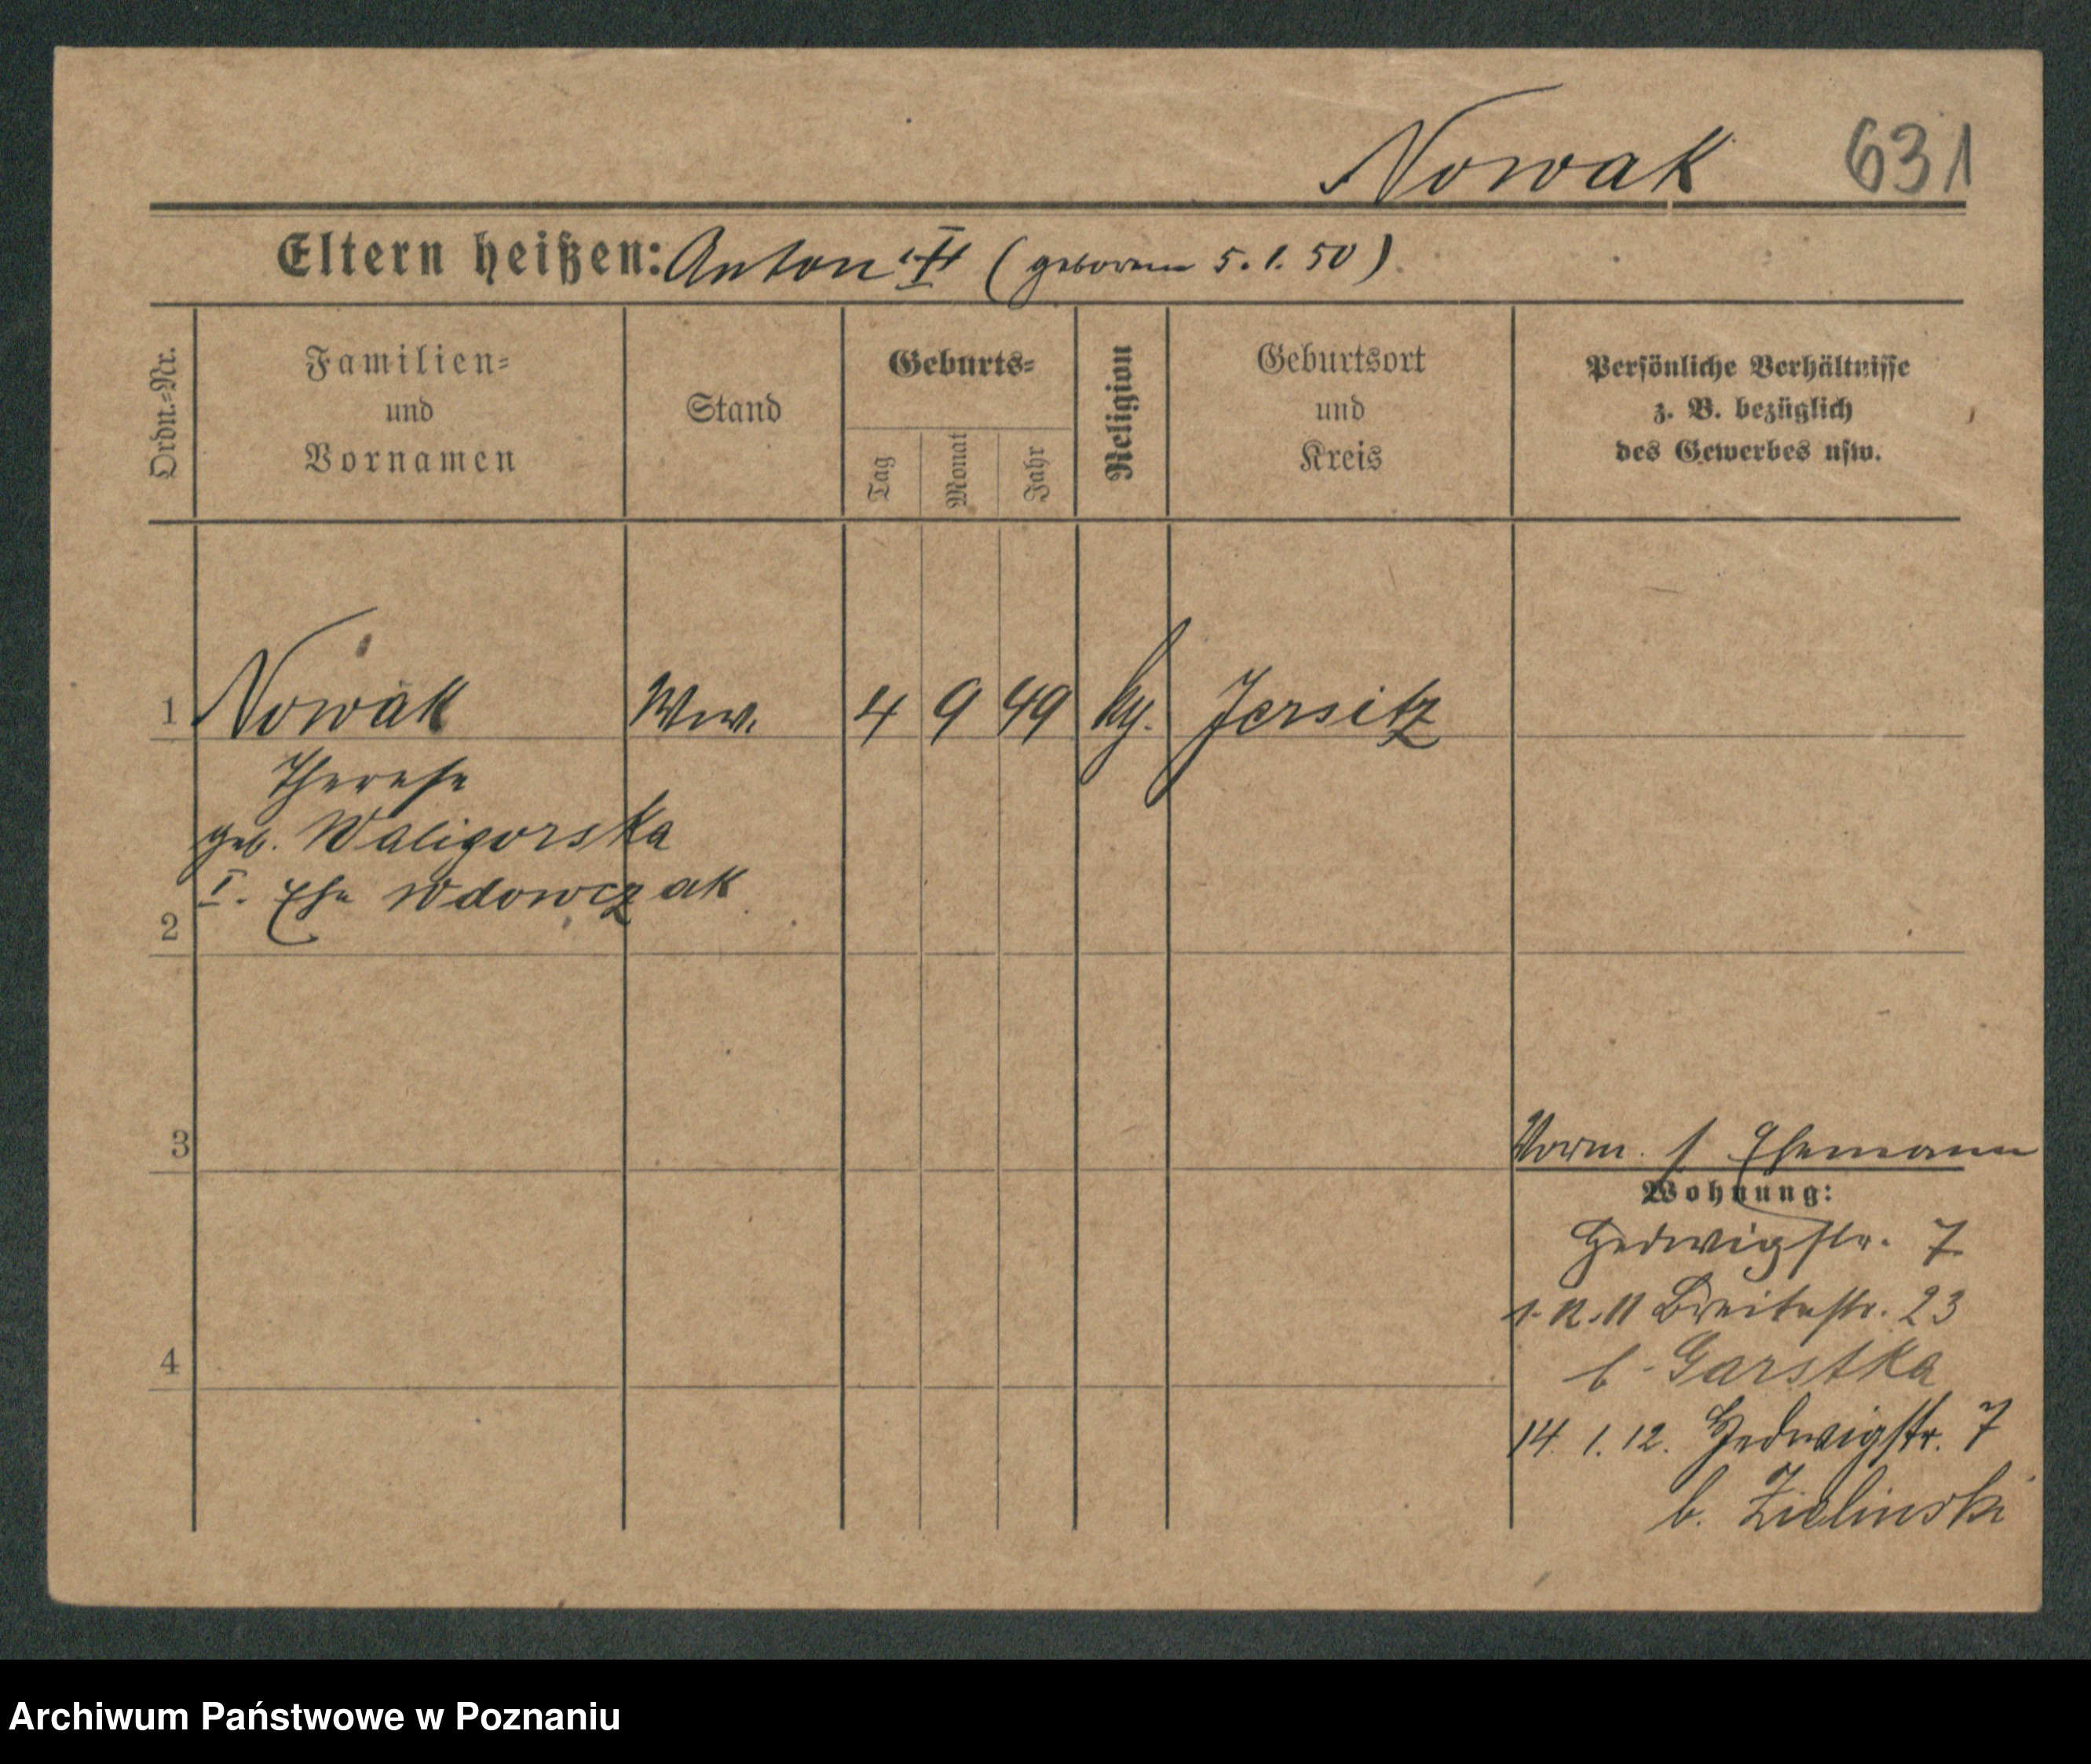 Nowak 631
Eltern heißen: Anton (geboren 5.1.50)
Ordn.=Nr.
Familien=
und
Vornamen
Stand
Geburts=
Tag
Monat
Jahr
Religion
Geburtsort
und
Kreis
Persönliche Verhältnisse
z. B. bezüglich
des Gewerbes usw.
1 Nowak Ww. 4 9 49 Jersitz
Therese
geb. Waligorska
I. Ehe Wdowczak
2
3
Vorm. f Ehemann
Wohnung:
Hedwigstr. 7
1.12.11 Breitestr. 23
b. Garstka
4
14. 1. 12. Hedwigstr. 7
b. Zielinski
Archiwum Państwowe w Poznaniu